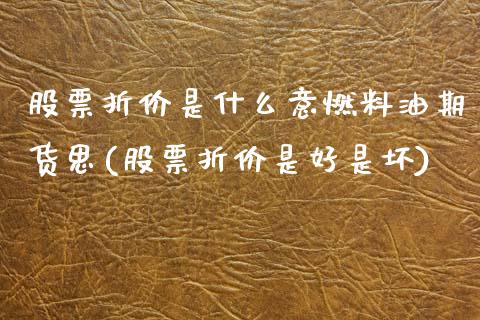 股票折价是什么意燃料油期
货思(股票折价是好是坏)